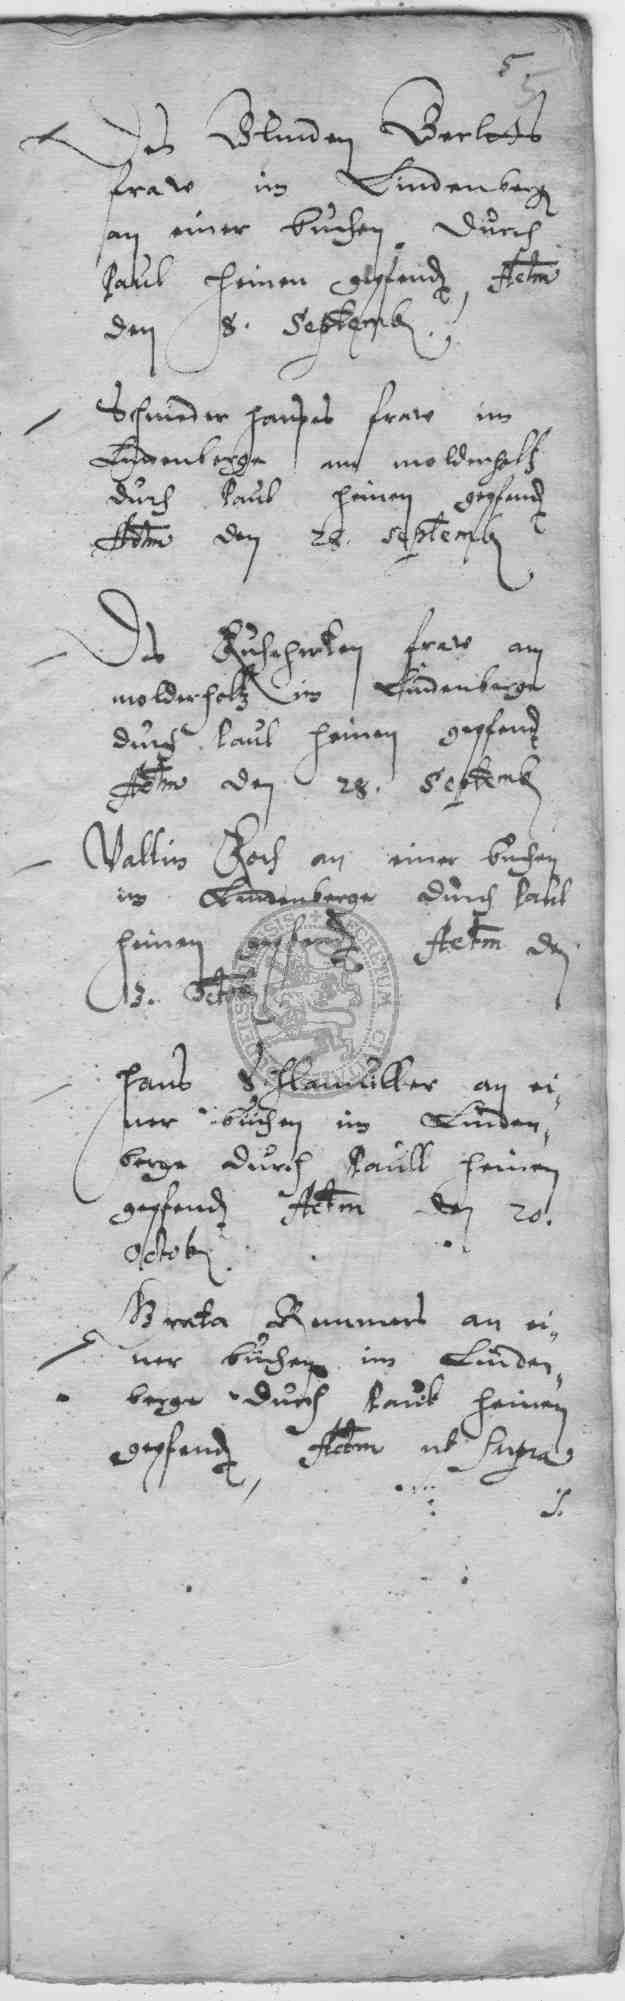 5
5
Des Blinden Berlets
fraw im Lindenberg
an einer buchen durch
Paul heinen gepfend, Actm
den 8. Septemb.
Schmieder hanses fraw im
Lindenberge am molderholtz
durch Paul heinen gepfend
Actm den 28. Septemb
Des fraw am
molderholtz im Lindenberge
durch Paul heinen gepfend
Actm den 28. Septemb
Valtin Koch an einer buchen
im Lindenberge durch Paul
heinen gepfend Actm den
13. Octob
Hans Schlamüller an ei-
ner buchen im Linden-
berge durch Paull heinen
gepfend Actm den 20.
Octob
Brata Remmers an ei-
ner buchen im Linden-
berge durch Paul heinen
gepfend, Actm ut supra